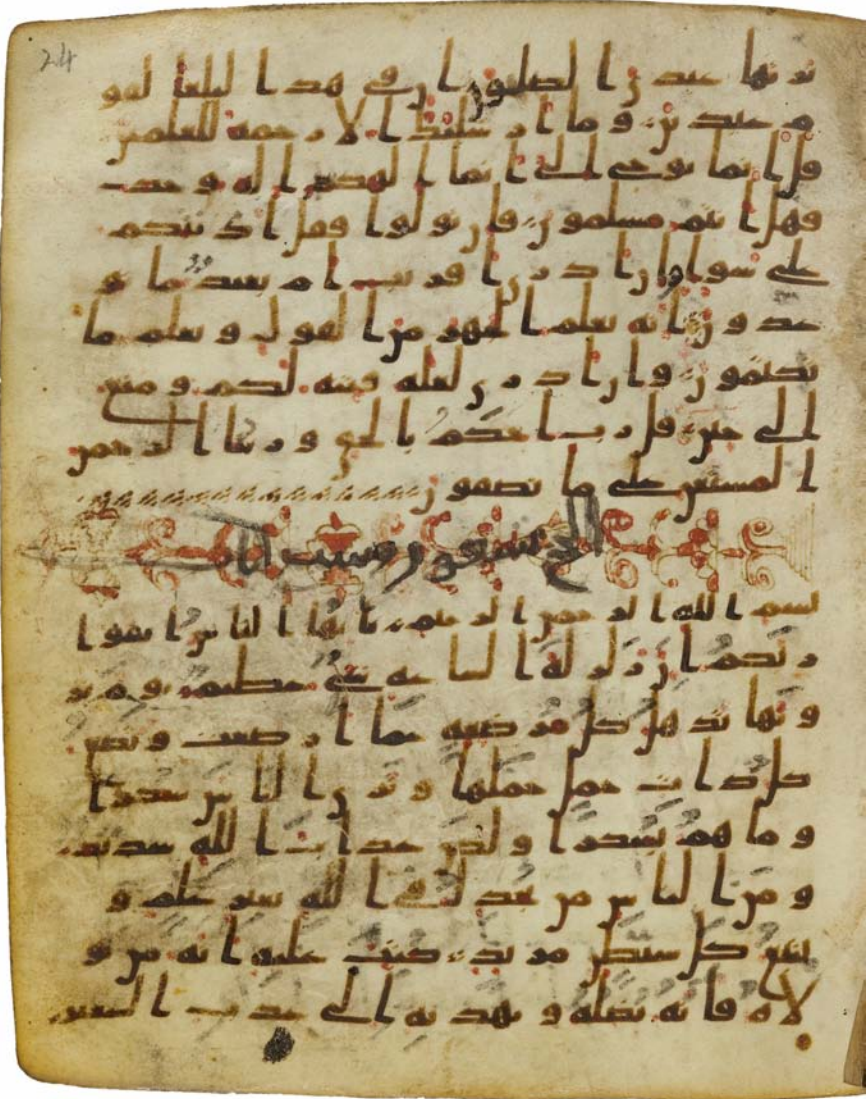 24
يرثها عبدي الصلحون ان في هذا لبلغا لقو
م عبدين وما ارسلنك الا رحمة للعلمين
قل انما يوحى الي انما الهكم اله وحد
فهل انتم مسلمون فان تولوا فقل اذنتكم
على سوا وان ادري اقريب ام بعيد ما تو
عدون انه يعلم الجهر من القول ويعلم ما
تكتمون وان ادري لعله فتنة لكم ومتع
الى حين قل رب احكم بالحق وربنا الرحمن
المستعن على ما تصفون
الحج سبعون وست ايات
بسم الله الرحمن الرحيم يايها الناس اتقوا
ربكم ان زلزلة الساعة شى عظيم يوم تر
ونها تذهل كل مرضعة عما ارضعت وتضع
كل ذات حمل حملها وترى الناس سكرى
وما هم بسكرى ولكن عذاب الله شديد
ومن الناس من يجدل في الله بغير علم و
يتبع كل شيطن مريد كتب عليه انه من تو
لاه فانه يضله ويهديه الى عذاب السعير